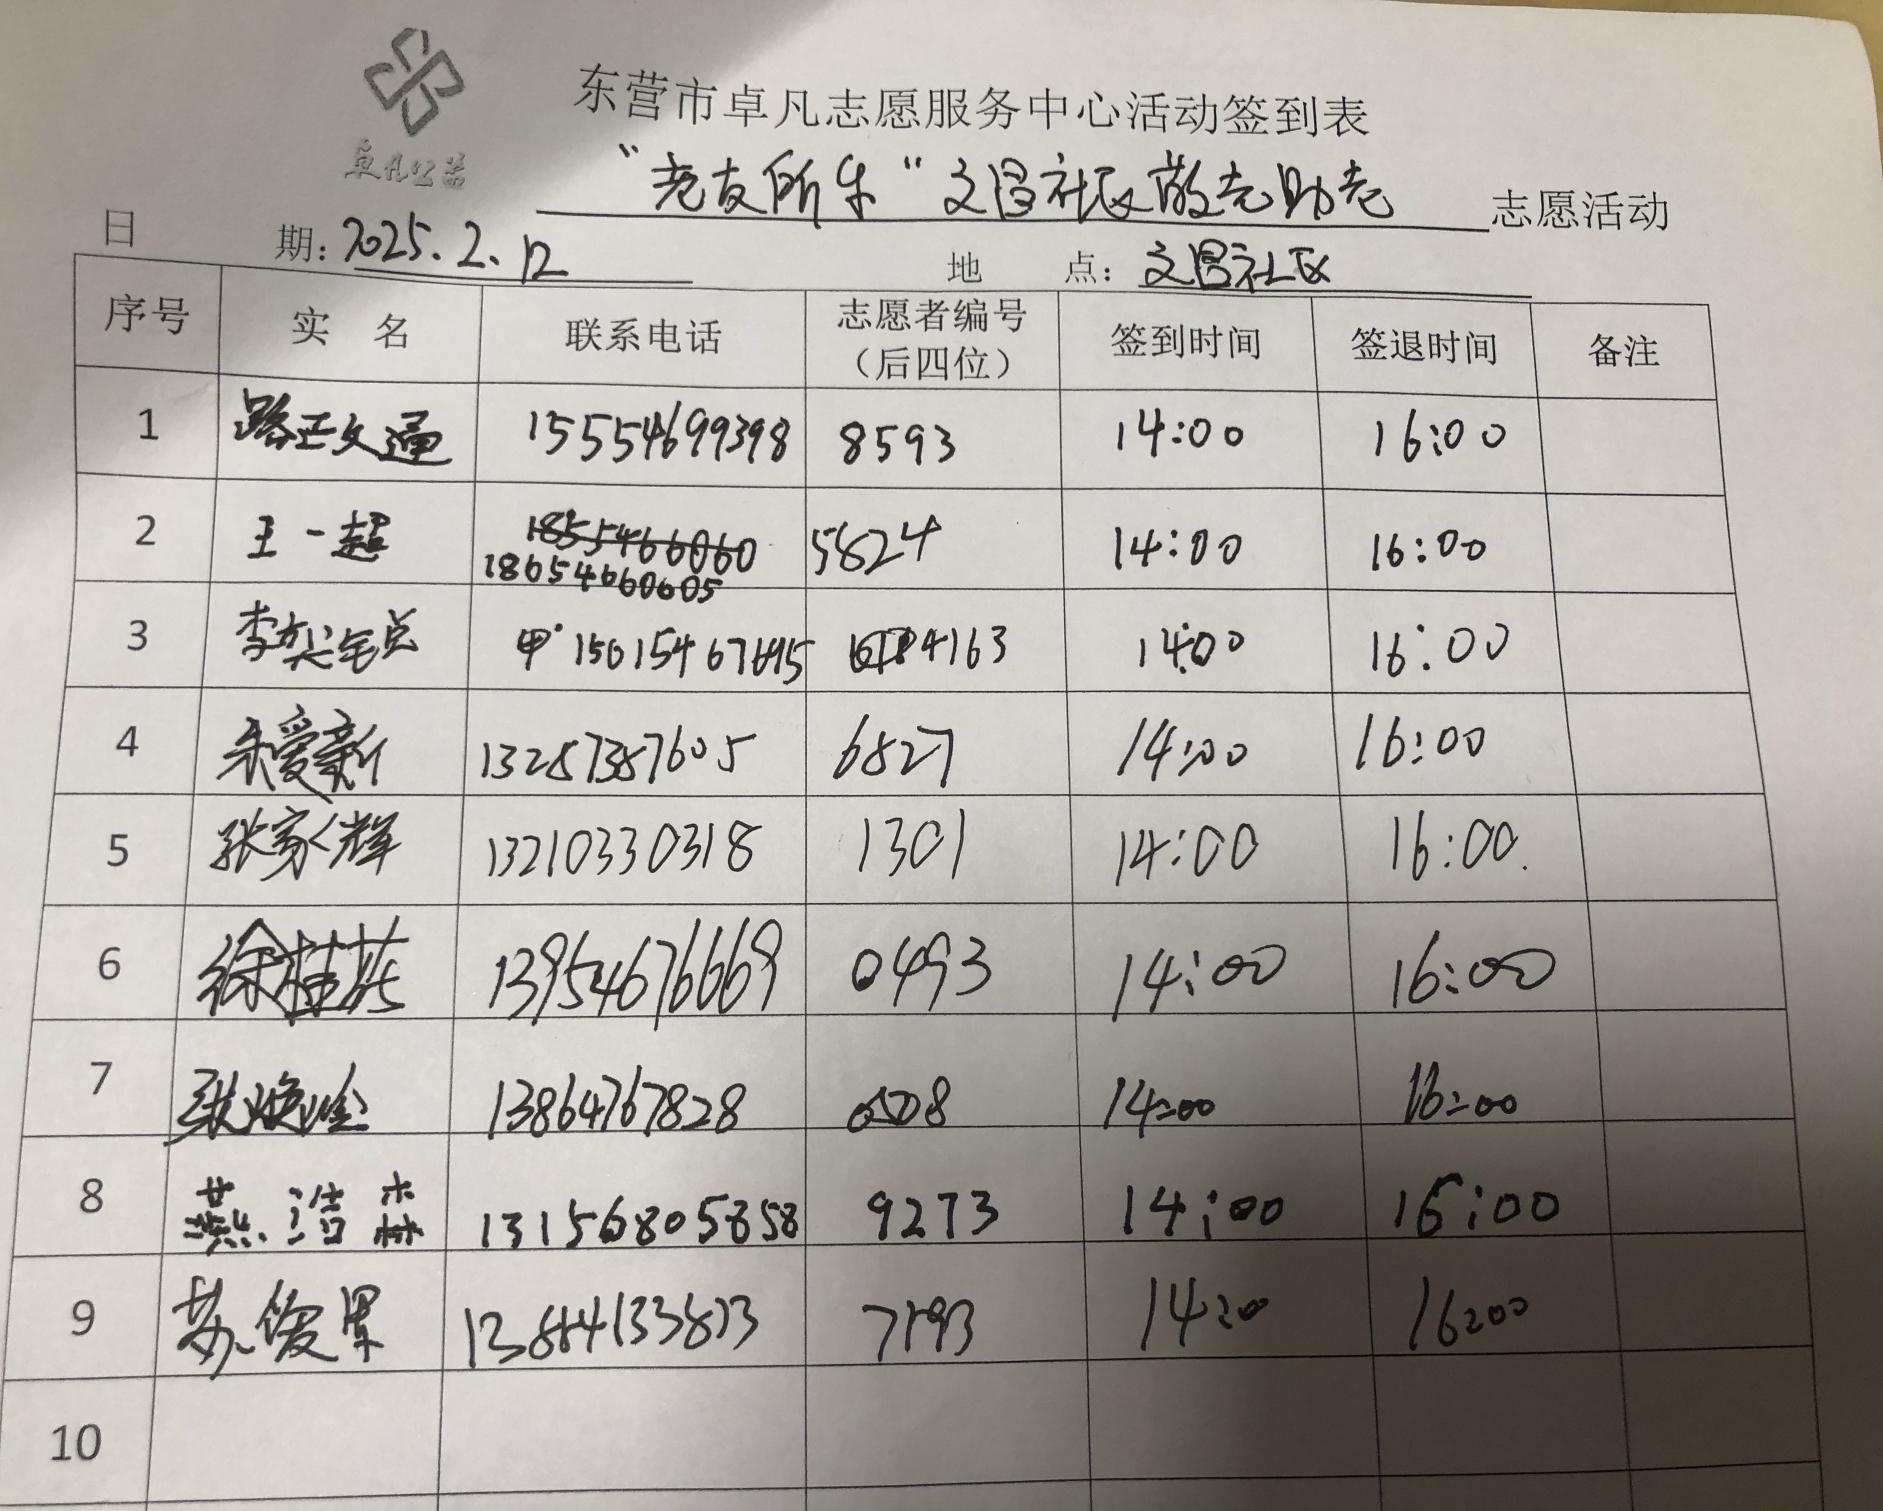 卓凡公益
东营市卓凡志愿服务中心活动签到表
“老友所乐”文昌社区敬老助老 志愿活动
日 期：2025.2.12 地 点：文昌社区
序号 实 名 联系电话 志愿者编号（后四位） 签到时间 签退时间 备注
1 路正文通 15554699398 8593 14:00 16:00
2 王一超 18554466060 18654660605 5824 14:00 16:00
3 李 4163 14:00 16:00
4 朱爱新 13287387605 6827 14:00 16:00
5 张家辉 13210330318 1301 14:00 16:00.
6 徐桂花 13954676669 0493 14:00 16:00
7 13864767828 0508 14:00 16:00
8 燕浩森 13156805858 9273 14:00 16:00
9 苏俊果 7193 14:00 16:00
10